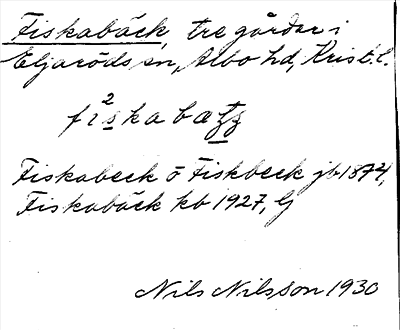 Fiskabäck, tre gårdar i
Eljaröds sn, Albo hd, Krist. l.
fi²skabatz
Fiskabeck ō Fiskbeck jb 1874,
Fiskabäck kb 1927, Ej
Nils Nilsson 1930